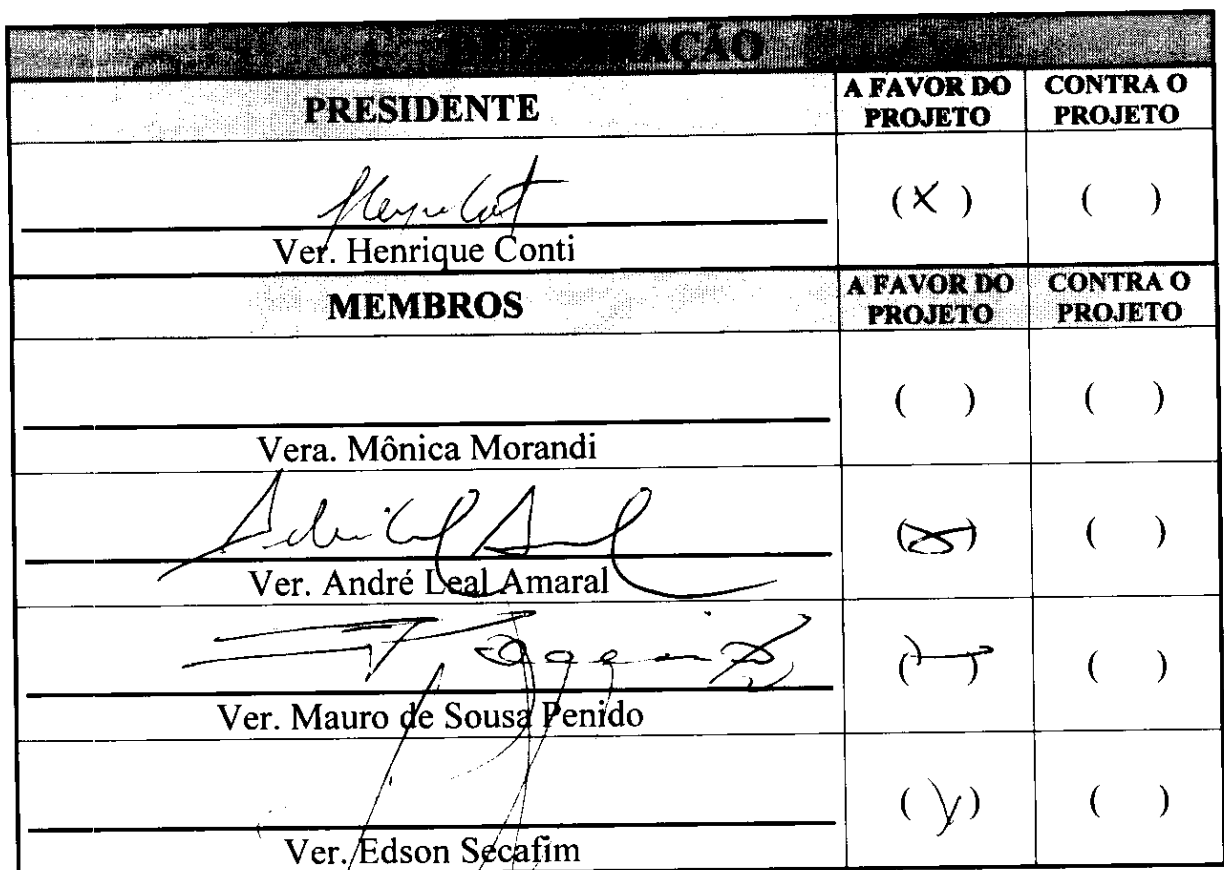 PRESIDENTE
A FAVOR DO PROJETO
CONTRA O PROJETO
(X) ( )
Ver. Henrique Conti
MEMBROS
A FAVOR DO PROJETO
CONTRA O PROJETO
( ) ( )
Vera. Mônica Morandi
(X) ( )
Ver. André Leal Amaral
( ) ( )
Ver. Mauro de Sousa Penido
( ) ( )
Ver. Edson Secafim